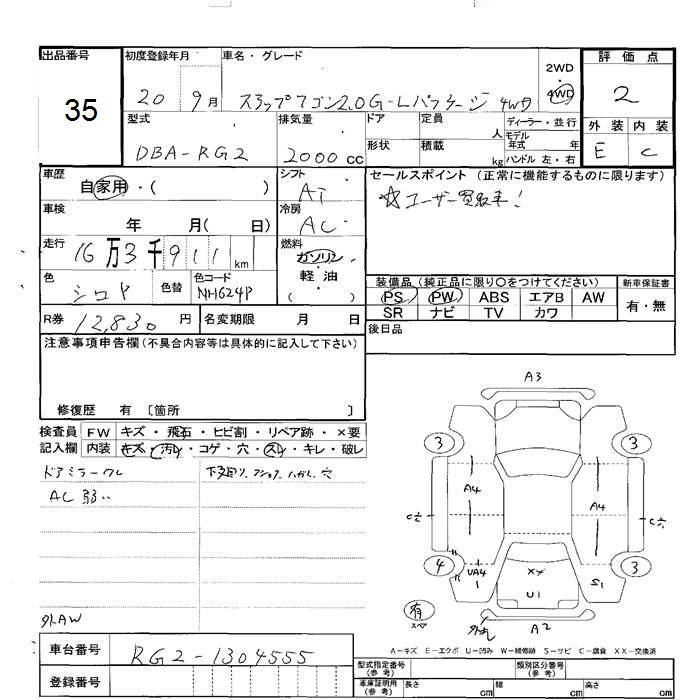 出品番号
35
初度登録年月
20 9月
車名・グレード
ステップワゴン2.0G-Lパッケージ 4WD
2WD
・
4WD
評価点
2
外装 内装
E C
型式
DBA-RG2
排気量
2000cc
ドア
形状
定員
人
積載
kg
ディーラー・並行
モデル年式 年
ハンドル 左・右
車歴
自家用・( )
シフト
AT
車検
年 月( 日)
冷房
AC
走行
16万3千911km
燃料
ガソリン
・
軽油
( )
色
シロP
色替
色コード
NH624P
R券
12,830円
名変期限 月 日
セールスポイント(正常に機能するものに限ります)
☆ユーザー買取車!
装備品(純正品に限り○をつけてください)
PS PW ABS エアB AW
SR ナビ TV カワ
新車保証書
有・無
後日品
注意事項申告欄(不具合内容等は具体的に記入して下さい)
修復歴 有 〔箇所 〕
検査員
記入欄
FW キズ・飛石・ヒビ割・リペア跡・×要
内装 キズ・汚レ・コゲ・穴・スレ・キレ・破レ
ドアミラーワレ
AC弱い
外AW
A3
3 3
A4 A4
4 3
UA4 XX S1
U1
A2
有
スペア
A-キズ E-エクボ U-凹み W-補修跡 S-サビ C-腐食 XX-交換済
車台番号
RG2-1304555
登録番号
型式指定番号
(参考)
類別区分番号
(参考)
車庫証明用
(参考)
長さ cm
幅 cm
高さ cm